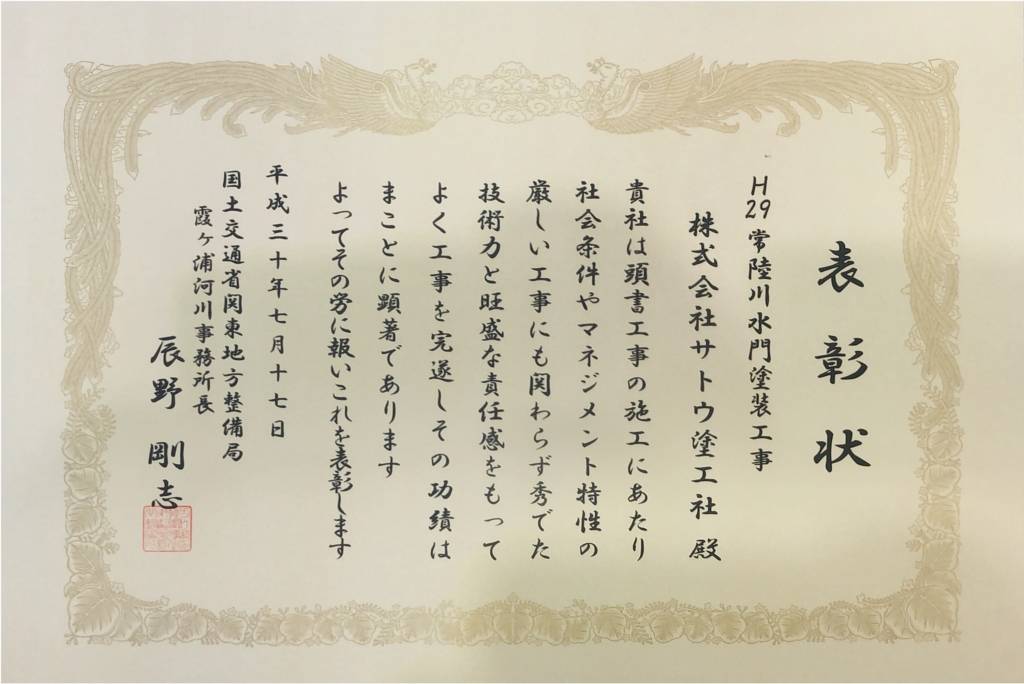 表彰状
H29常陸川水門塗装工事
株式会社サトウ塗工社 殿
貴社は頭書工事の施工にあたり
社会条件やマネジメント特性の
厳しい工事にも関わらず秀でた
技術力と旺盛な責任感をもって
よく工事を完遂しその功績は
まことに顕著であります
よってその労に報いこれを表彰します
平成三十年七月十七日
国土交通省関東地方整備局
霞ヶ浦河川事務所長
辰野剛志